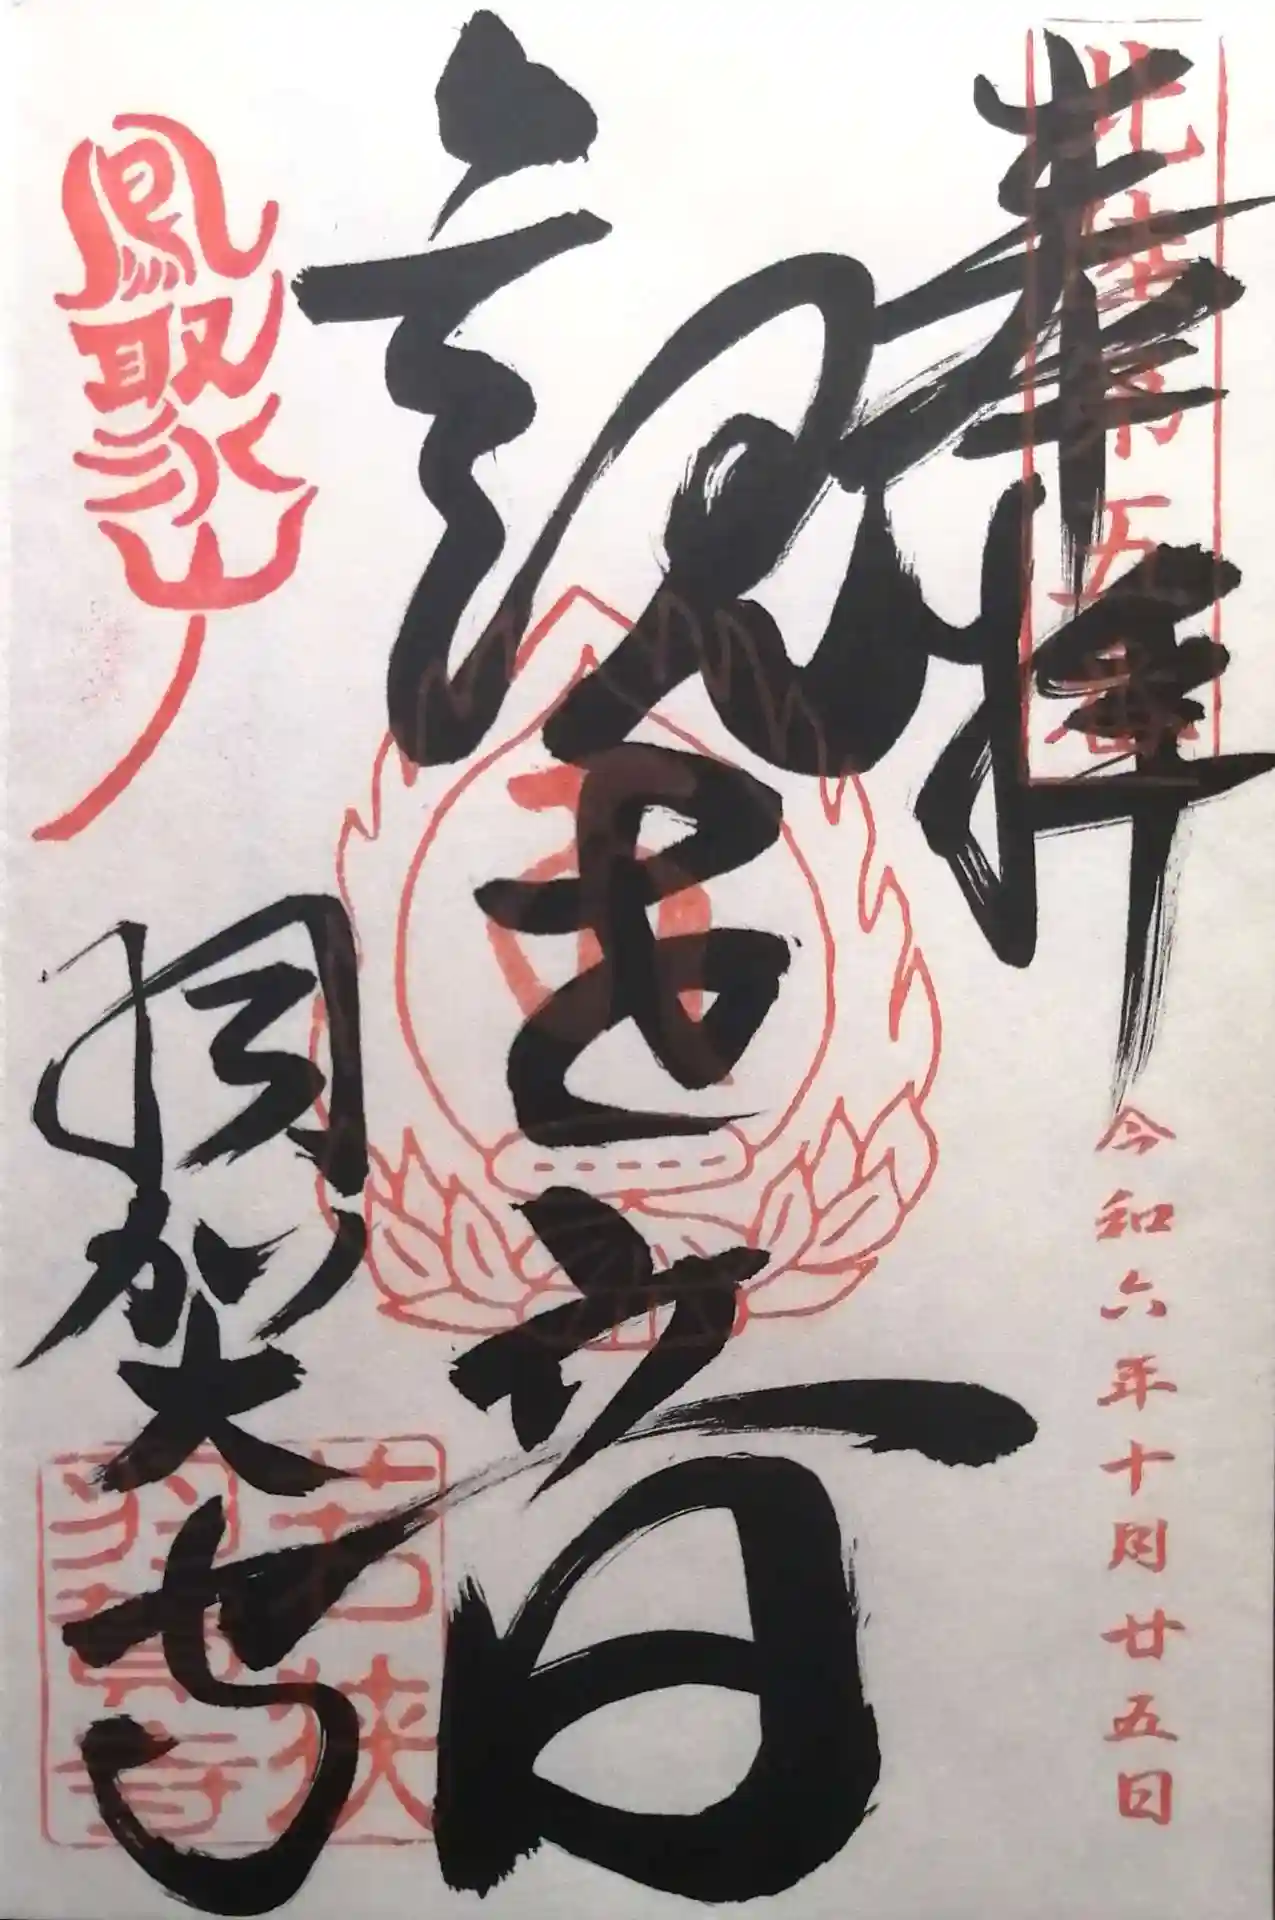 北陸第五番
奉拝
令和六年十月廿五日
観世音
鳳聚山
羽賀大寺
若狭
羽賀寺